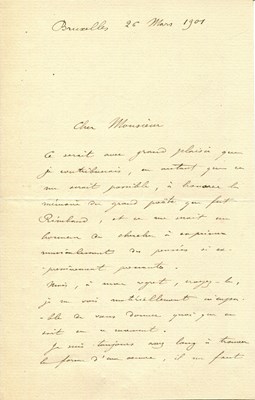 Bruxelles 26 Mars 1901
Cher Monsieur
Ce serait avec grand plaisir que
je contribuerais, en autant que ce
me serait possible, à honorer la
mémoire du grand poète que fut
Rimbaud, et ce me serait un
honneur de chercher à exprimer
musicalement des pensées si ex-
pressivement
Mais, à mon regret, croyez-le,
je me vois matériellement incapa-
ble de vous donner quoi que ce
soit en ce moment.
Je suis toujours assez long à trouver
la forme d'une œuvre, il me faut